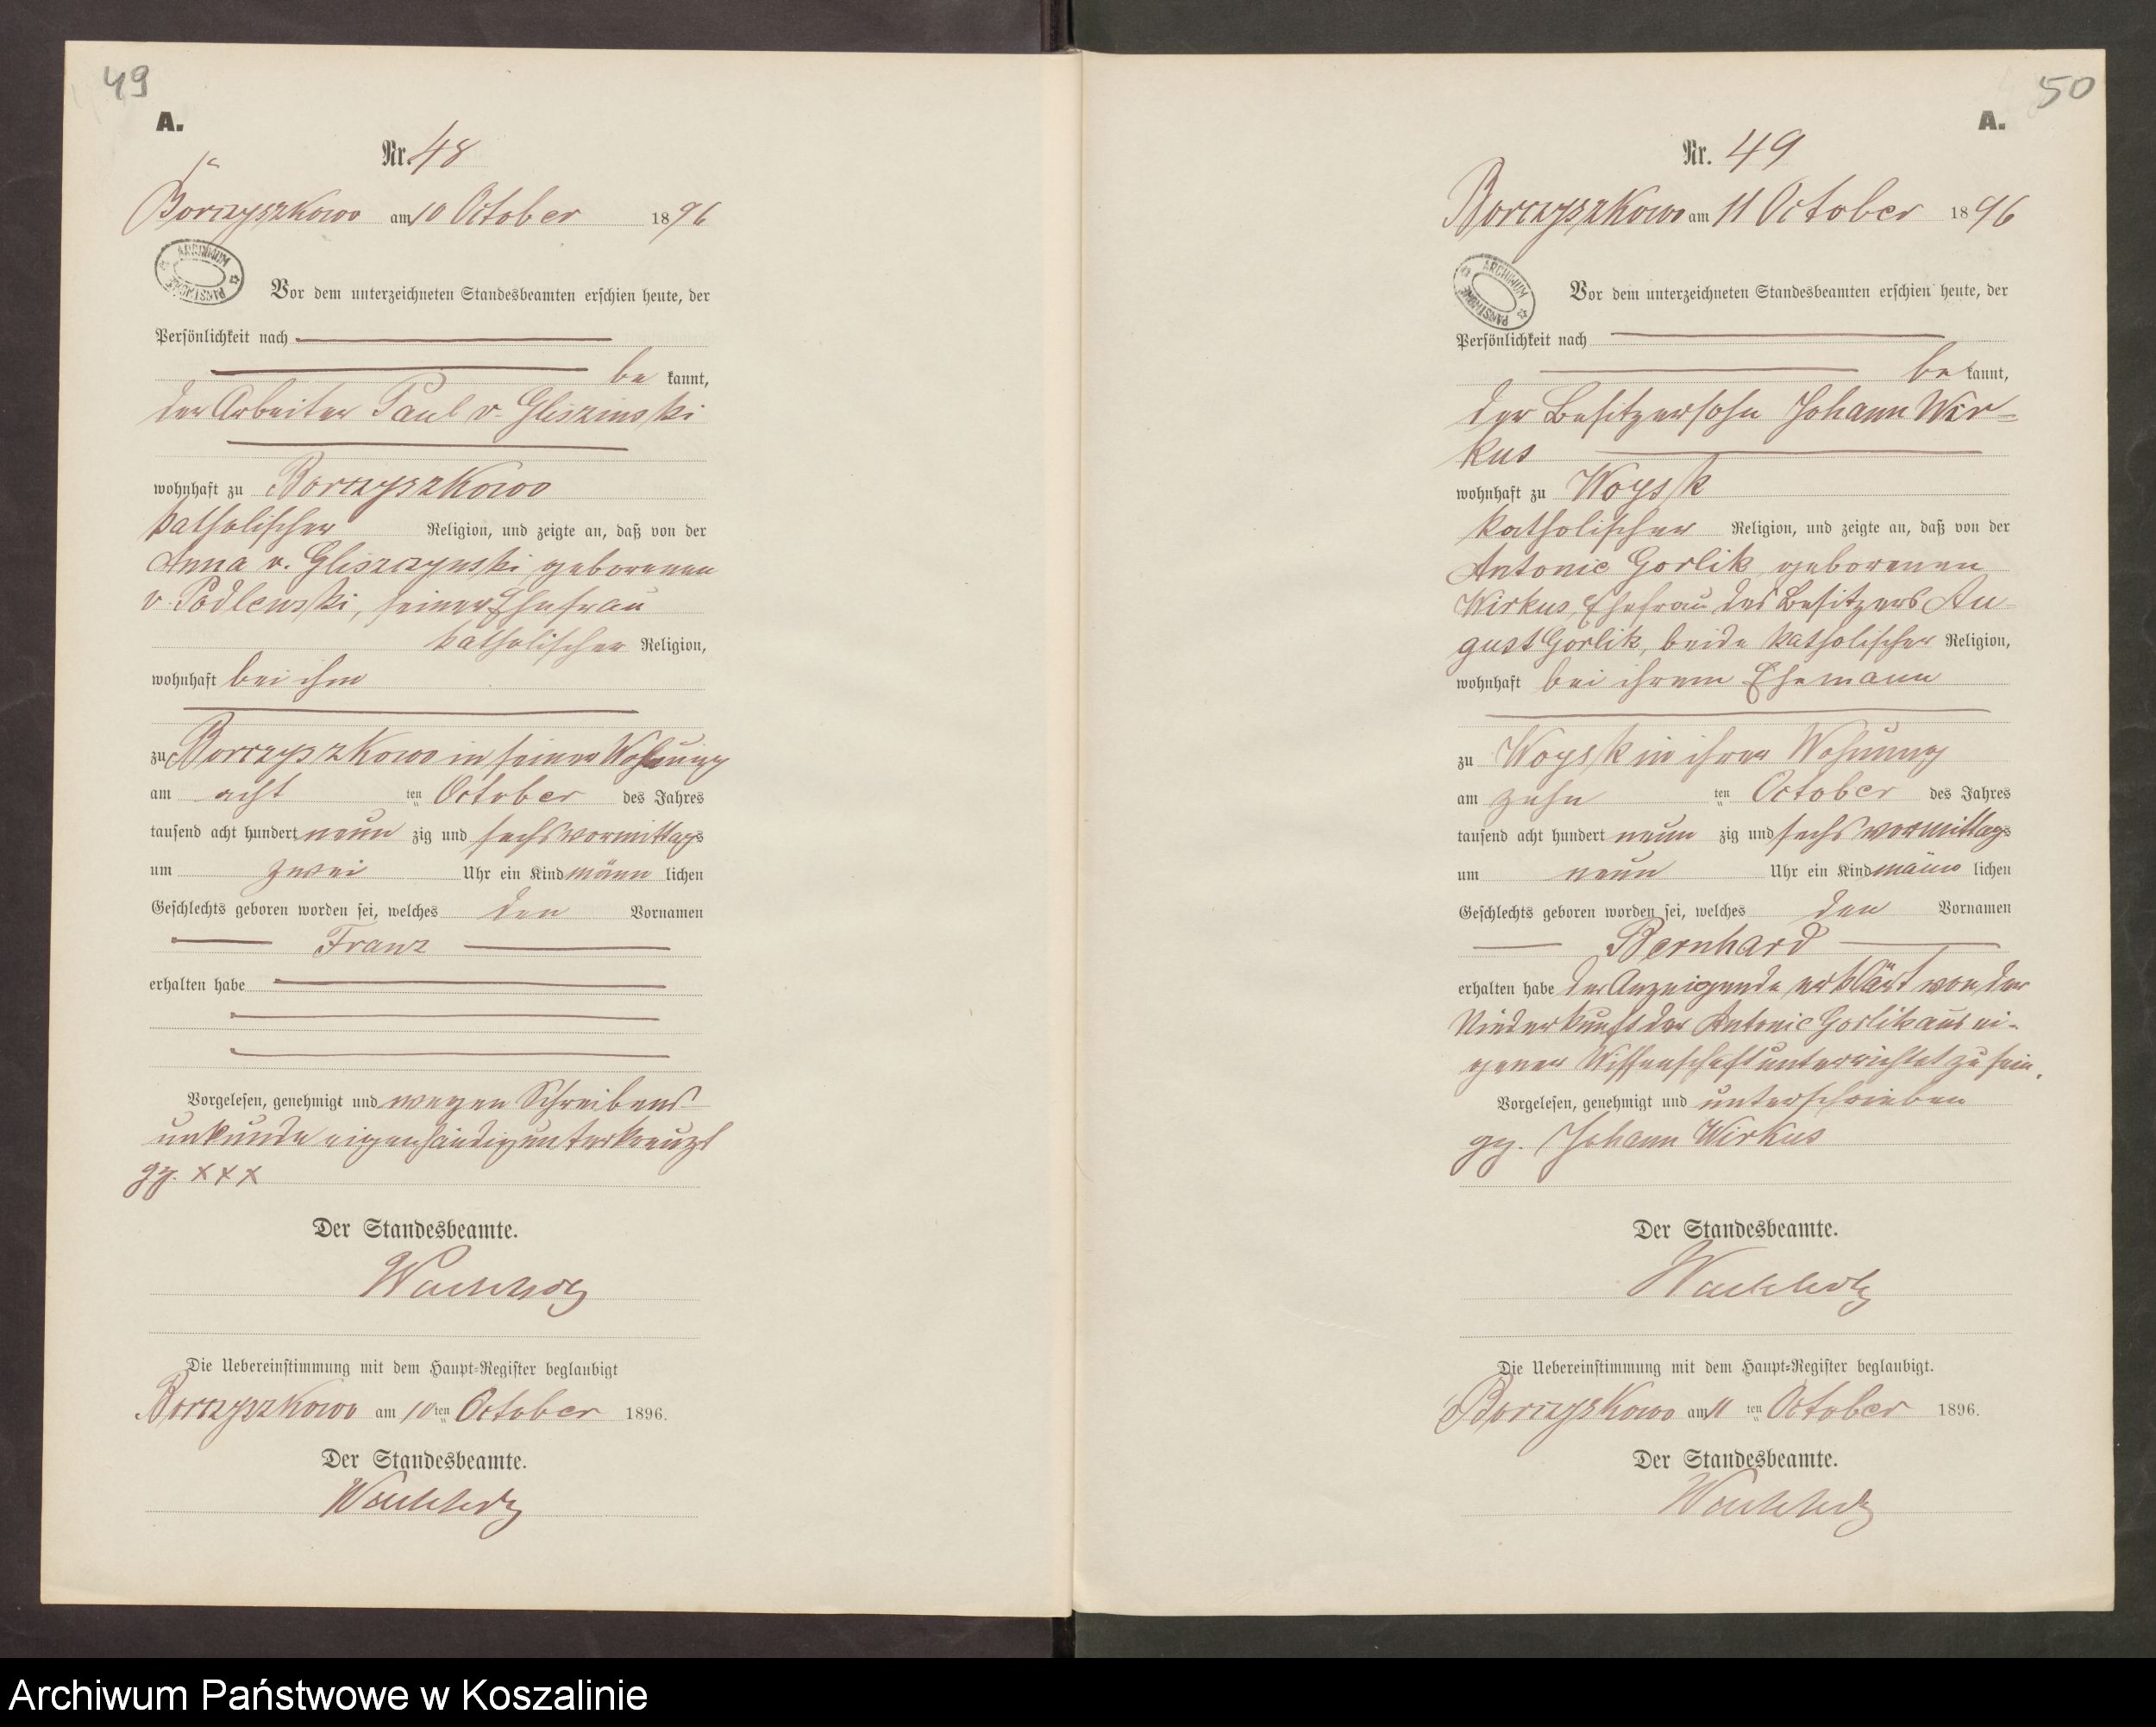 49
A.
Nr. 48
Borczyszkowo am 10 October 1896
ARCHIWUM PAŃSTWOWE
Vor dem unterzeichneten Standesbeamten erschien heute, der
Persönlichkeit nach
be kannt,
der Arbeiter Paul v. Gliszinski
wohnhaft zu Borczyszkowo
katholischer Religion, und zeigte an, daß von der
Anna v. Gliszczynski geborenen
v. Podlewski, seiner Ehefrau
katholischer Religion,
wohnhaft bei ihm
zu Borczyszkowo in seiner Wohnung
am acht ten October des Jahres
tausend acht hundert neun zig und sechs vormittags
um zwei Uhr ein Kind männ lichen
Geschlechts geboren worden sei, welches den Vornamen
Franz
erhalten habe
Vorgelesen, genehmigt und wegen Schreibens
unkunde eigenhändig unterkreuzt
gz. xxx
Der Standesbeamte.
Wachholz
Die Uebereinstimmung mit dem Haupt-Register beglaubigt
Borczyszkowo am 10ten October 1896.
Der Standesbeamte.
Wachholz
50
A.
Nr. 49
Borczyszkowo am 11 October 1896
ARCHIWUM PAŃSTWOWE
Vor dem unterzeichneten Standesbeamten erschien heute, der
Persönlichkeit nach
be kannt,
der Besitzersohn Johann Wir-
kus
wohnhaft zu Woysk
katholischer Religion, und zeigte an, daß von der
Antonie Gorlik geborenen
Wirkus, Ehefrau des Besitzers Au
gust Gorlik, beide katholischer Religion,
wohnhaft bei ihrem Ehemann
zu Woysk in ihrer Wohnung
am zehn ten October des Jahres
tausend acht hundert neun zig und sechs vormittags
um neun Uhr ein Kind männ lichen
Geschlechts geboren worden sei, welches den Vornamen
Bernhard
erhalten habe der Anzeigende erklärt von der
Niederkunft der Antonie Gorlik aus ei-
gener Wissenschaft unterrichtet zu sein.
Vorgelesen, genehmigt und unterschrieben
gz. Johann Wirkus
Der Standesbeamte.
Wachholz
Die Uebereinstimmung mit dem Haupt-Register beglaubigt.
Borczyskowo am 11 ten October 1896.
Der Standesbeamte.
Wachholz
Archiwum Państwowe w Koszalinie